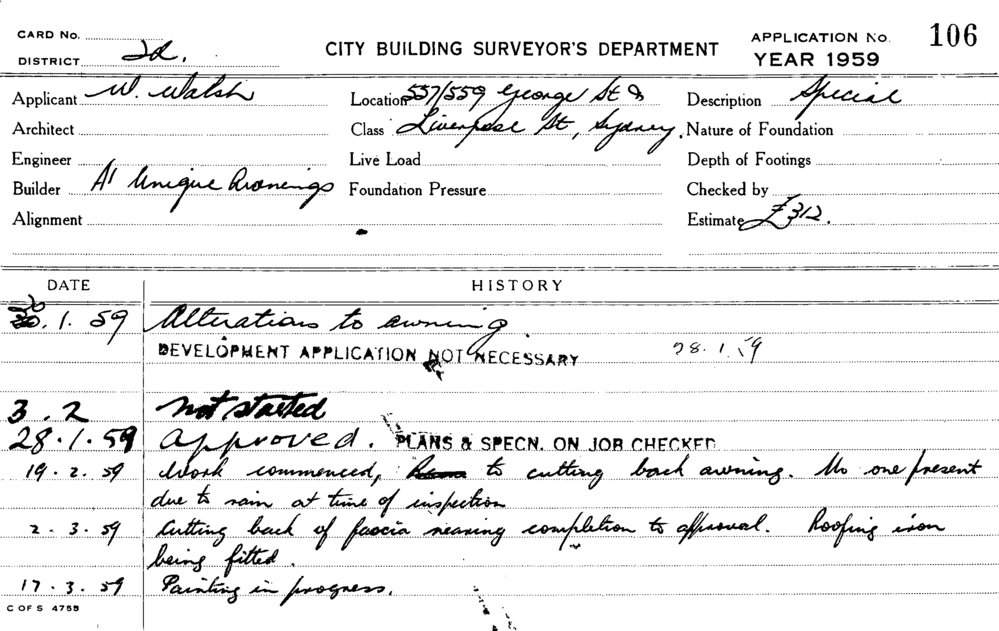 CARD No.
DISTRICT 2d.
CITY BUILDING SURVEYOR'S DEPARTMENT
APPLICATION No. 106
YEAR 1959
Applicant W. Walsh
Location 557/559 George St &
Description Special
Architect
Class Liverpool St, Sydney.
Nature of Foundation
Engineer
Live Load
Depth of Footings
Builder A1 Unique Awnings
Foundation Pressure
Checked by
Alignment
Estimate £312.
DATE HISTORY
20.1.59 Alterations to awning
DEVELOPMENT APPLICATION NOT NECESSARY 28.1.59
3.2 not started
28.1.59 Approved. PLANS & SPECN. ON JOB CHECKED
19.2.59 Work commenced, to cutting back awning. No one present
due to rain at time of inspection
2.3.59 Cutting back of fascia nearing completion to approval. Roofing iron
being fitted.
17.3.59 Painting in progress.
C OF S 4755